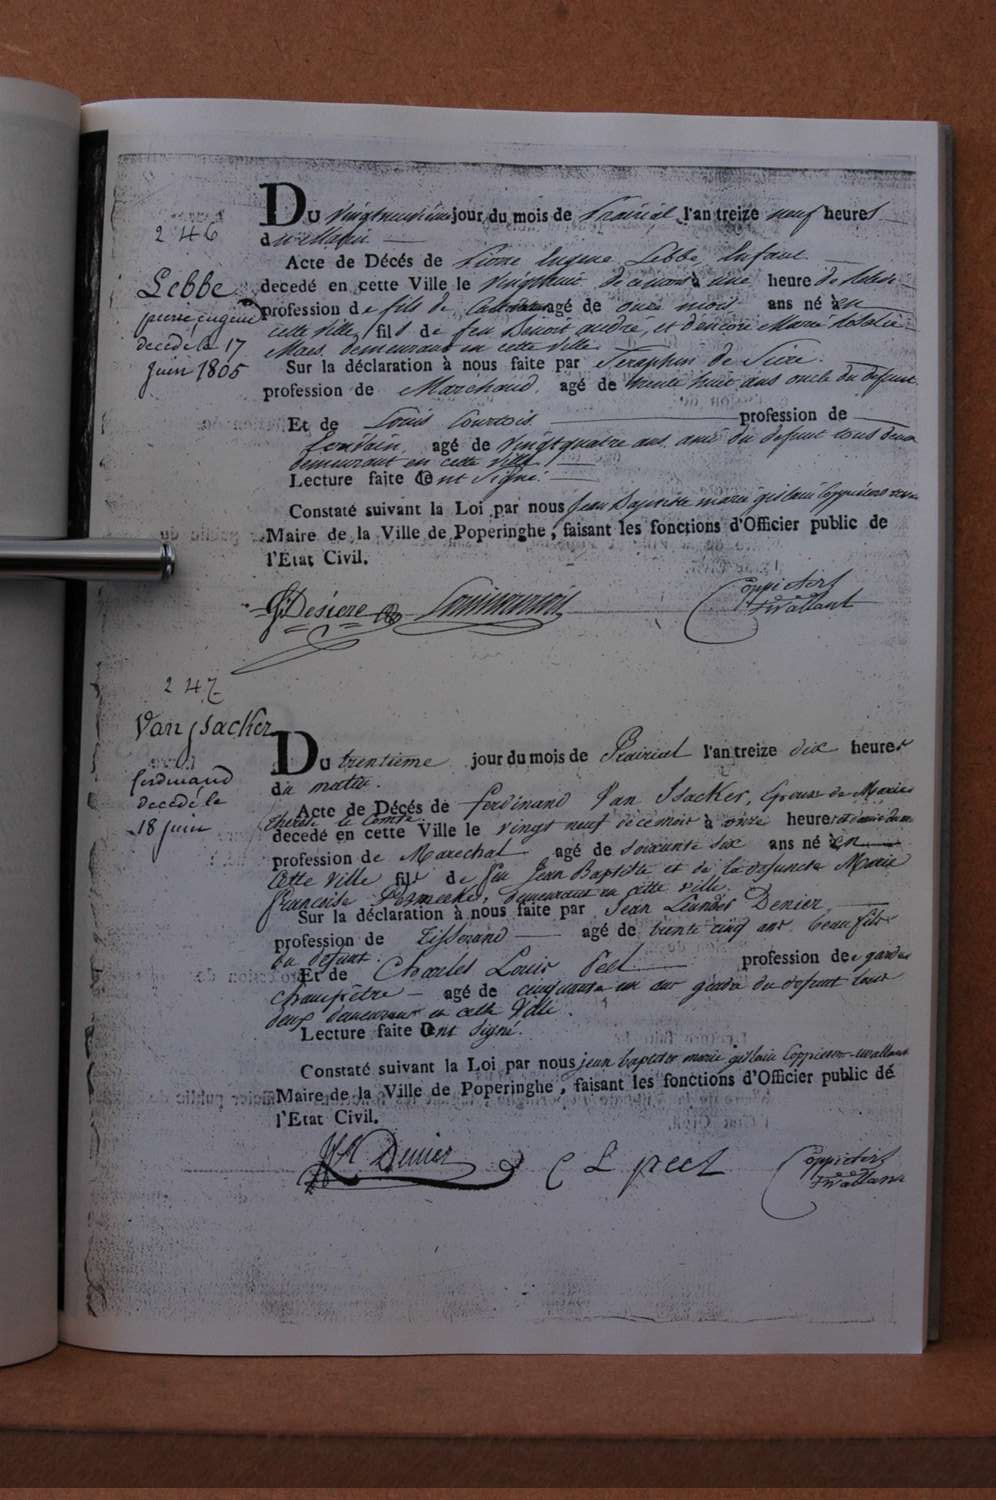 246
Lebbe
pierre eugene
decedé le 17
juin 1805
Du vingtneuvieme jour du mois de Prairial l'an treize neuf heures
du matin
Acte de Décés de Pierre Eugene Lebbe, Enfant
decedé en cette Ville le vingthuit de ce mois à une heure de
profession de fils de agé de onze mois ans né en
cette ville fils de feu Benoit andre, et d'encore Marie Rosalie
Maes, demeurant en cette ville
Sur la déclaration à nous faite par Seraphin de Siere
profession de Marchand agé de trente huit ans oncle du defunt
Et de Louis Courtois profession de
agé de vingtquatre ans ami du defunt tous deux
demeurant en cette ville
Lecture faite ont signé.
Constaté suivant la Loi par nous Jean Baptiste marie gislain Coppieters
Maire de la Ville de Poperinghe, faisant les fonctions d'Officier public de
l'Etat Civil.
Desiere
Coppieters
tWallant
247
Van Jsacker
ferdinand
decedé le
18 juin
Du trentieme jour du mois de Prairial l'an treize dix heures
du matin.
Acte de Décés de ferdinand Van Isacker, Epoux de Marie
therese le Comte
decedé en cette Ville le vingt neuf de ce mois à onze heures
profession de Marechal agé de soixante six ans né en
Cette Ville fils de feu Jean Baptiste et de la defuncte Marie
françoise demeurant en cette ville
Sur la déclaration à nous faite par Jean Leander Denier
profession de Tisserand agé de trente cinq ans beau fils
du defunt.
Et de Charles Louis Peel profession de garde
champêtre agé de cinquante un ans gendre du defunt tous
deux demeurant en cette Ville.
Lecture faite Ont signé.
Constaté suivant la Loi par nous jean baptiste marie gislain Coppieters-wallant
Maire de la Ville de Poperinghe, faisant les fonctions d'Officier public de
l'Etat Civil.
Denier
C L peel
Coppieters
tWallant